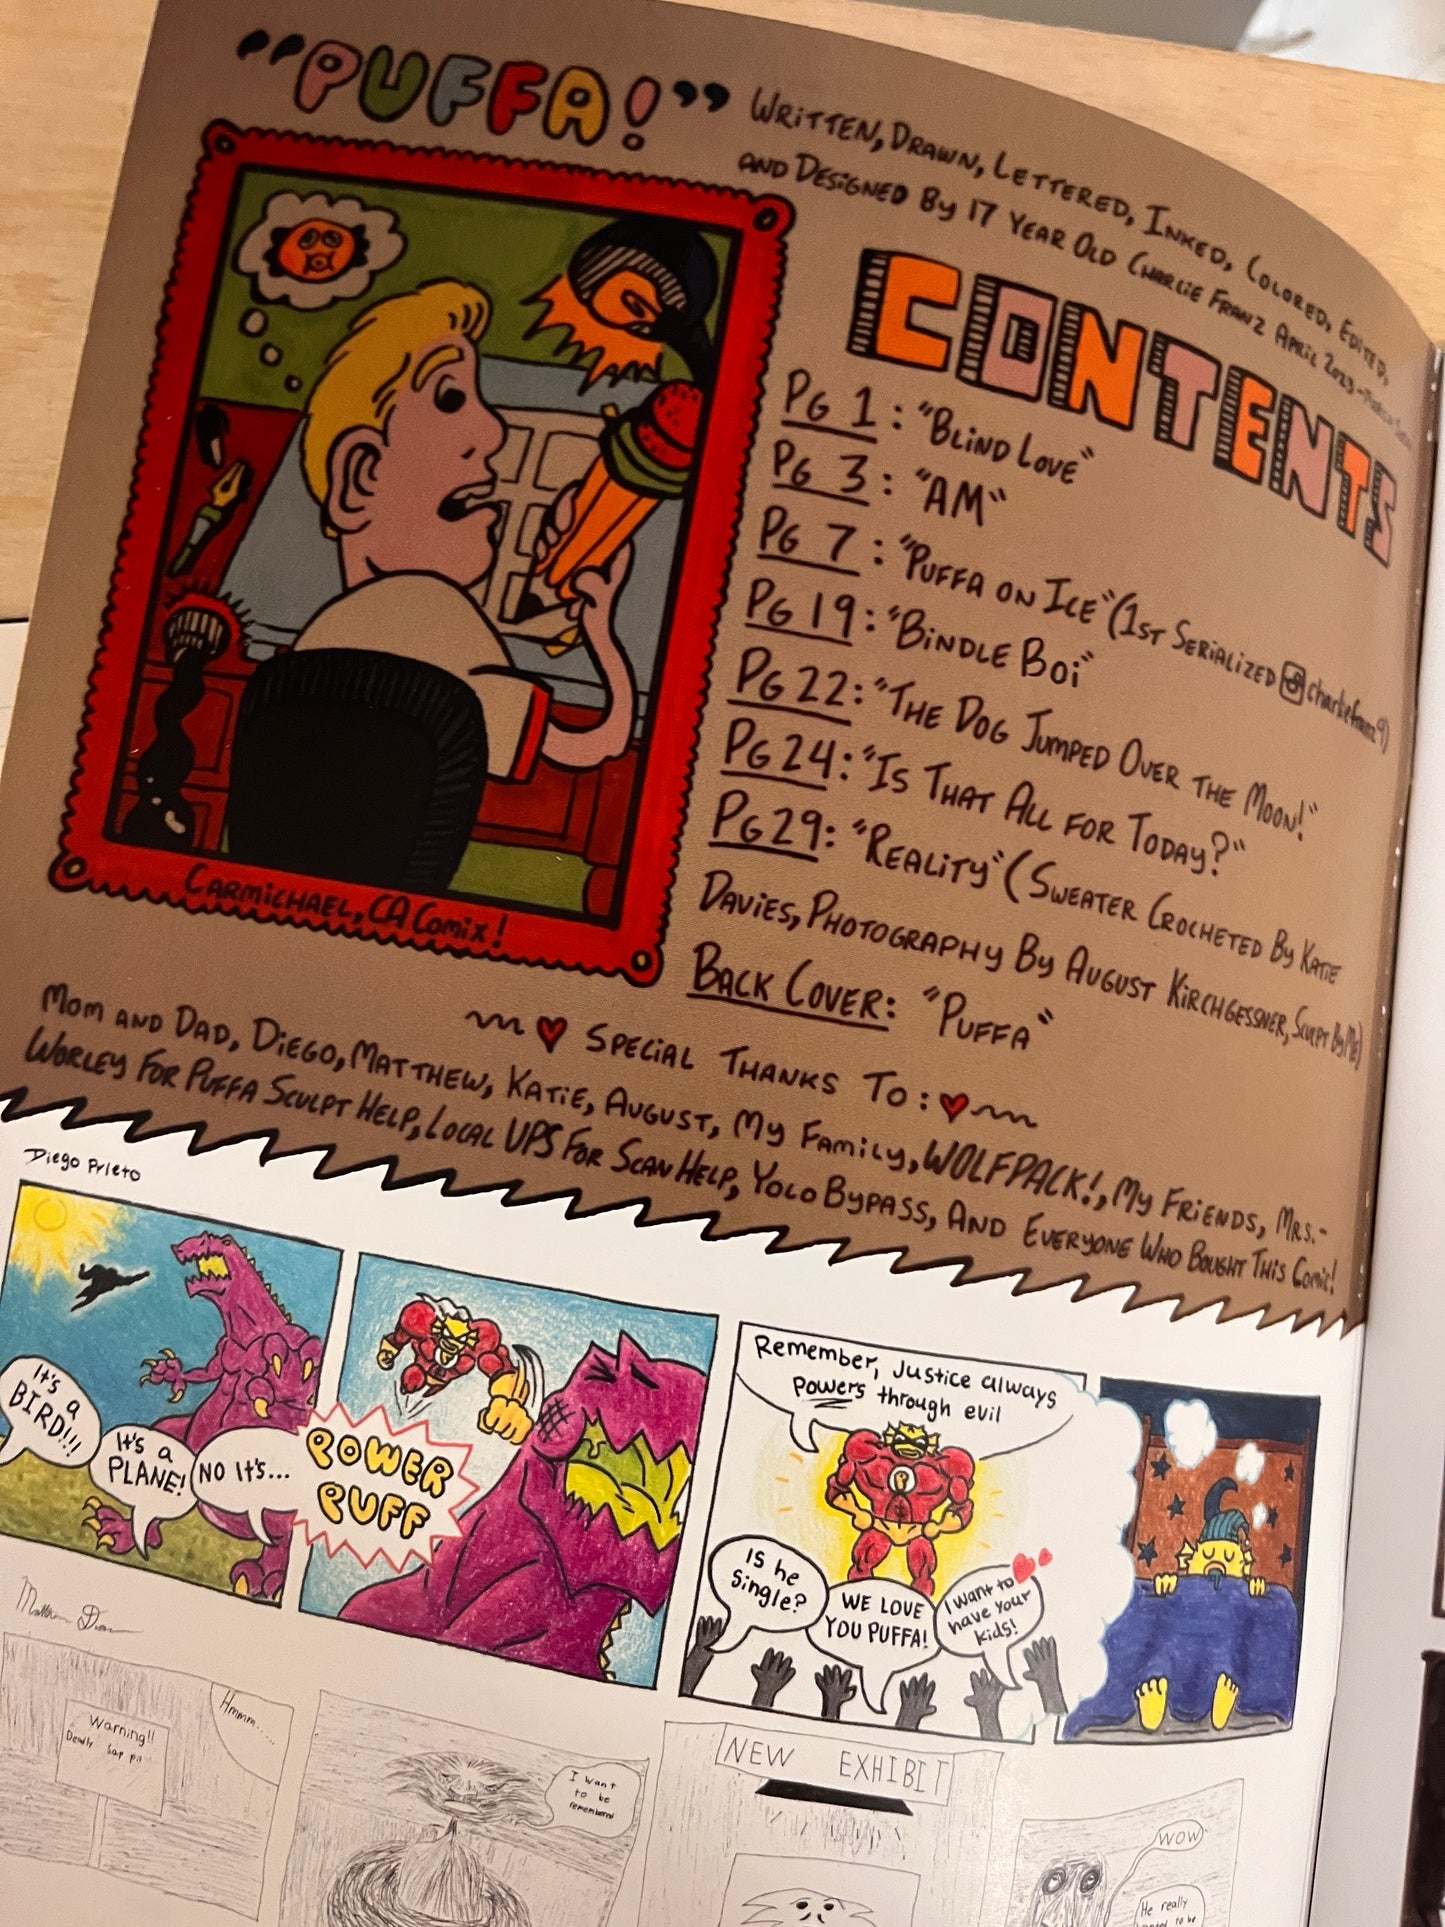 "PUFFA!"
WRITTEN, DRAWN, LETTERED, INKED, COLORED, EDITED,
AND DESIGNED BY 17 YEAR OLD CHARLIE FRANZ APRIL 2023
CONTENTS
PG 1: "BLIND LOVE"
PG 3: "AM"
PG 7: "PUFFA ON ICE" (1ST SERIALIZED charliefranz9)
PG 19: "BINDLE BOi"
PG 22: "THE DOG JUMPED OVER THE MOON!"
PG 24: "IS THAT ALL FOR TODAY?"
PG 29: "REALITY" (SWEATER CROCHETED BY KATIE
DAVIES, PHOTOGRAPHY BY AUGUST KIRCHGESSNER, SCULPT BY ME)
BACK COVER: "PUFFA"
CARMICHAEL, CA COMIX!
SPECIAL THANKS TO:
MOM AND DAD, DIEGO, MATTHEW, KATIE, AUGUST, MY FAMILY, WOLFPACK!, MY FRIENDS, MRS.-
WORLEY FOR PUFFA SCULPT HELP, LOCAL UPS FOR SCAN HELP, YOLO BYPASS, AND EVERYONE WHO BOUGHT THIS COMIC!
Diego Prieto
It's a BIRD!!!
It's a PLANE!
NO It's...
POWER
PUFF
Remember, Justice always
powers through evil
Is he single?
WE LOVE YOU PUFFA!
I want to have your kids!
P
Warning!!
Hmmm...
I want
to be
remembered
NEW EXHIBIT
WOW
He really
wanted to be